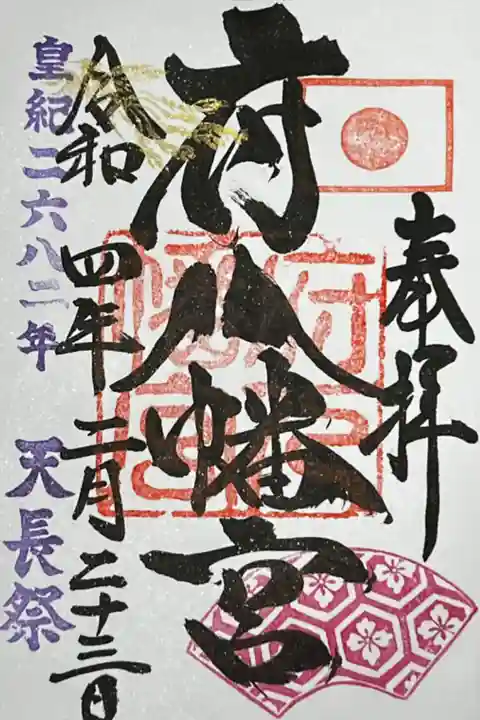 奉拝
府八幡宮
令和四年二月二十三日
皇紀二六八二年
天長祭